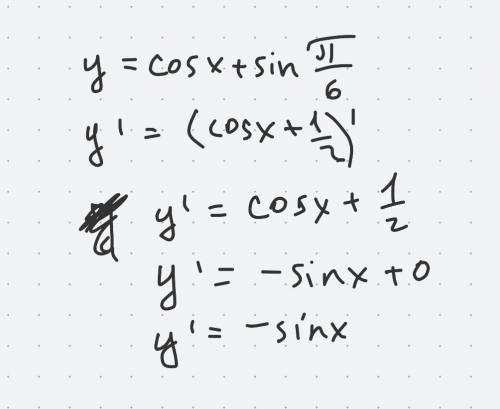 y = cosx + sin π/6
y' = (cosx + 1/2)'
y' = cosx + 1/2
y' = -sinx + 0
y' = -sinx